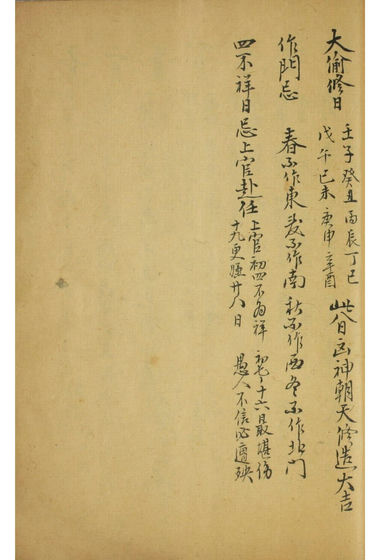 大偷修日 壬子癸丑丙辰丁巳
戊午己未庚申辛酉 此八日凶神朝天修造大吉
作門忌 春不作東夏不作南秋不作西冬不作北門
四不祥日忌上官赴任 上官初四不為祥 初七十六日最堪傷
十九更嫌廿八日 愚人不信必遭殃